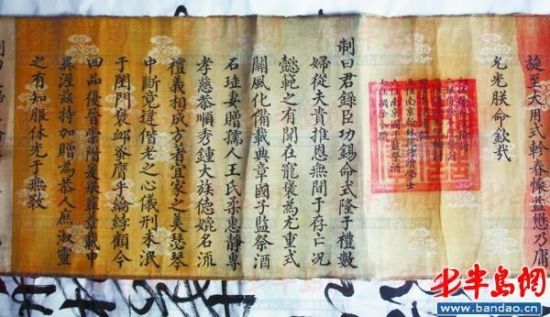 旋至大用式軫春懷益懋乃庸
允光朕命欽哉
制曰君錄臣功錫命式隆于禮數
婦從夫貴推恩無間于存亡況
懿範之有聞在寵褒為尤重式
關風化備載典章國子監祭酒
石珤妻贈孺人王氏柔惠靜專
孝慈恭順秀鍾大族德媲名流
禮義相成方著宜家之美瑟琴
中斷竟違偕老之心儀刑未泯
于閨門褒卹蚤膺乎綸綍顧今
四品優晉崇階爰舉彝章載申
異渥茲特加贈為恭人庶淑靈
之有知服休光于無斁
半岛網
www.bandao.cn